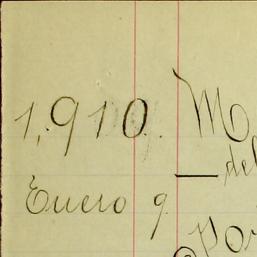 1,910. M
del
Enero 9. Por